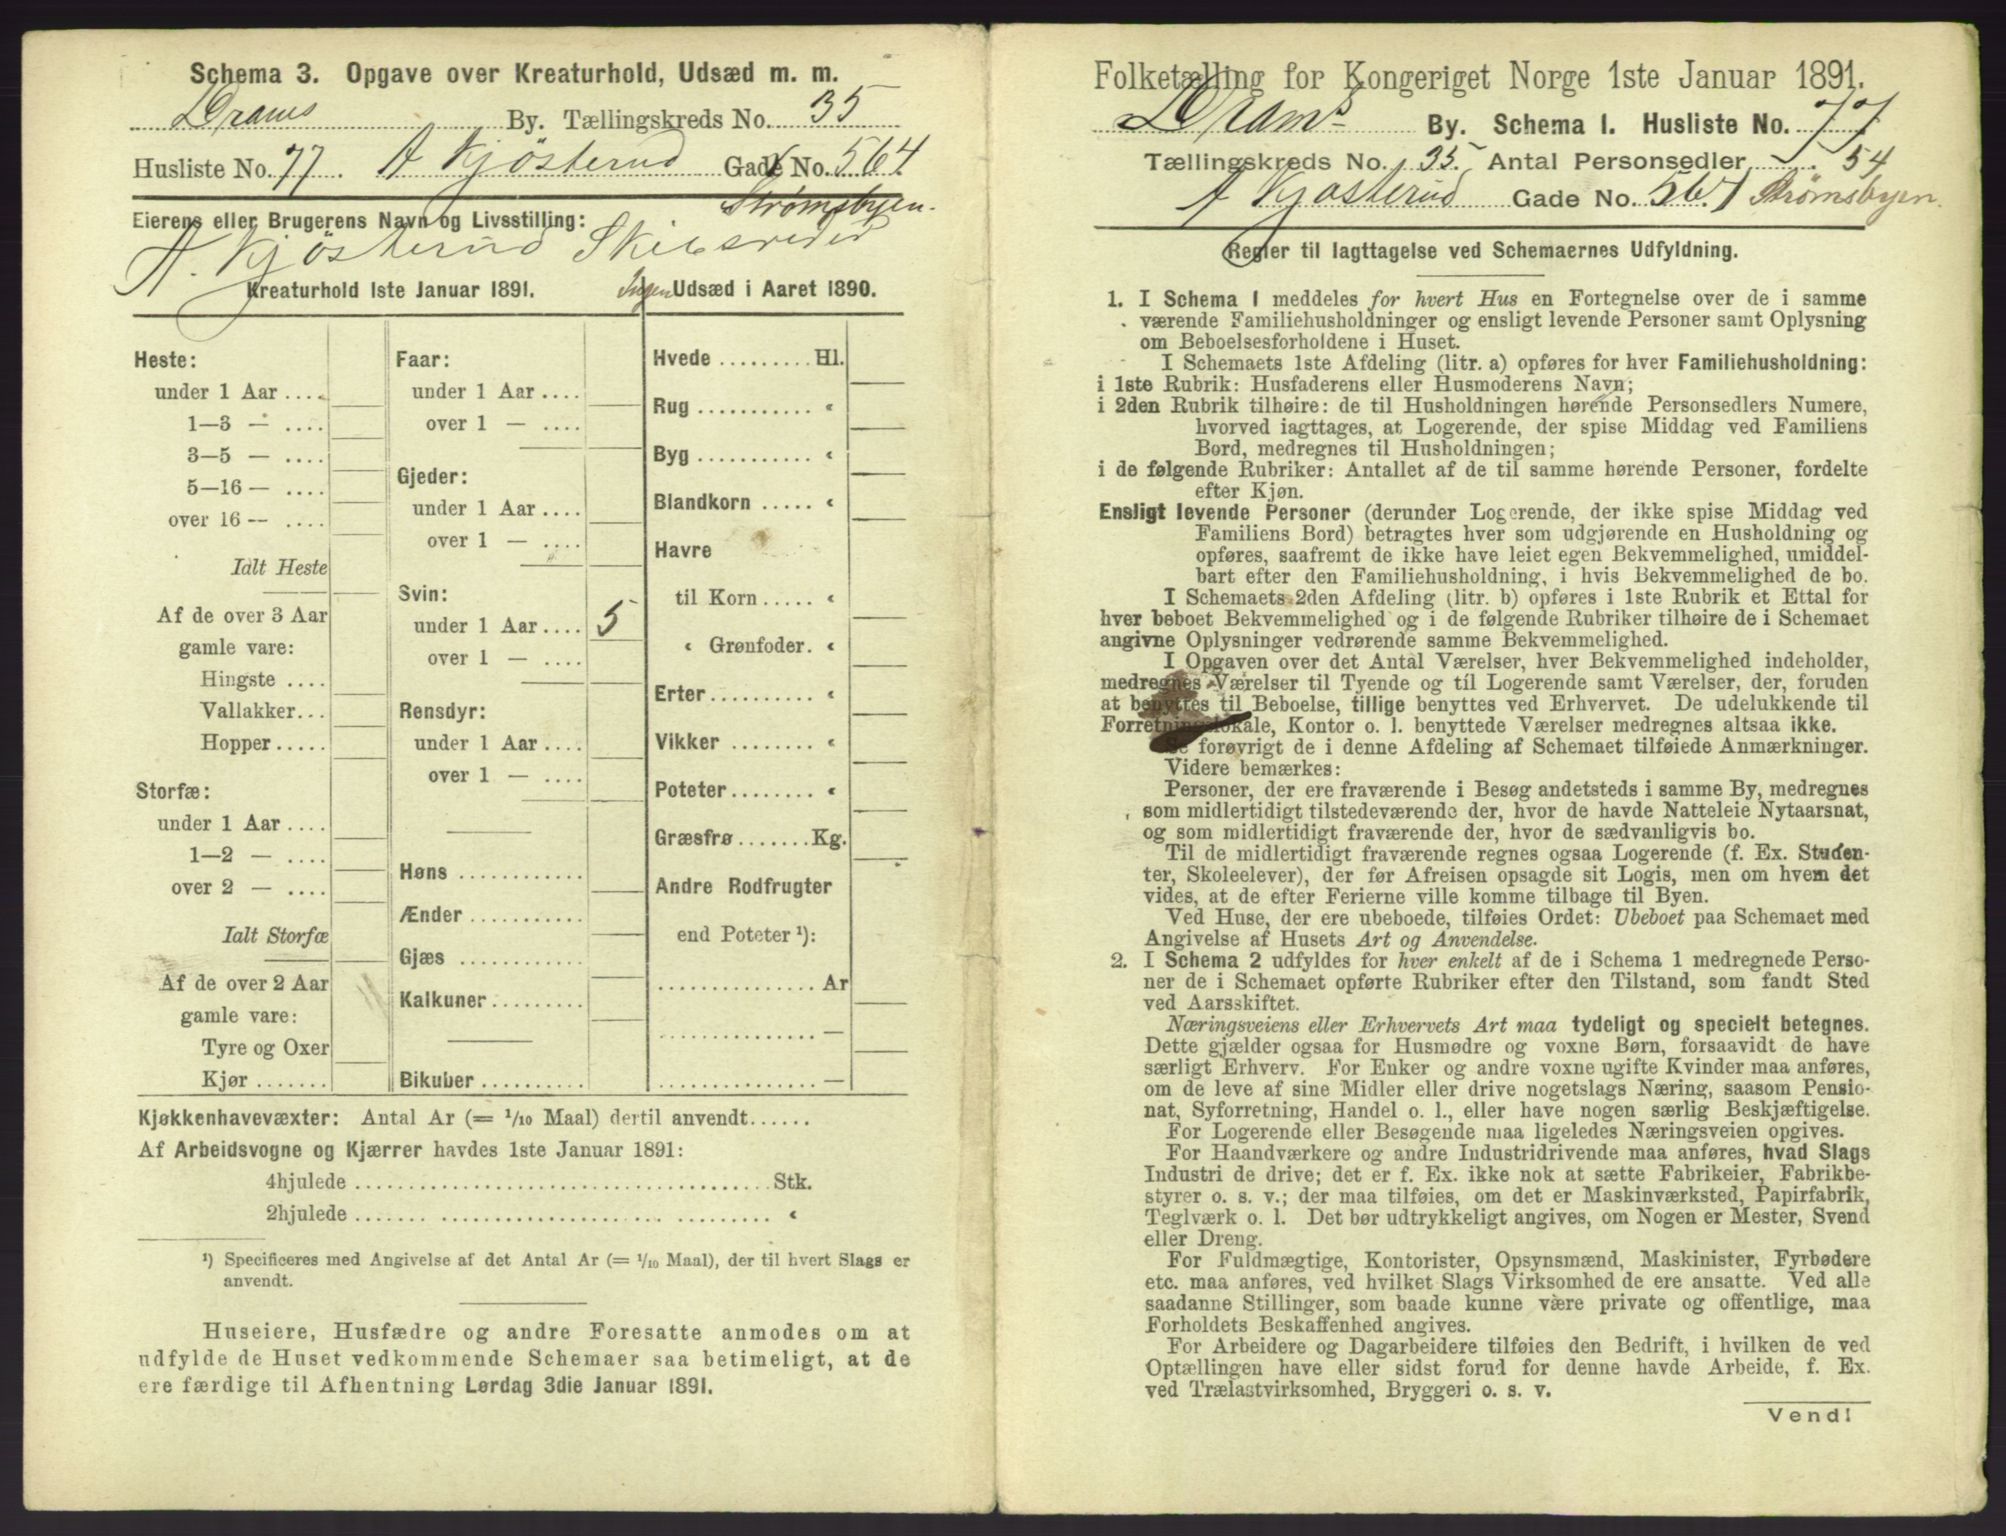 Schema 3. Opgave over Kreaturhold, Udsæd m. m.
Drams By. Tællingskreds No. 35
Husliste No. 77. A Kjösterud Gade No. 564
Strømsbyen.
Eierens eller Brugerens Navn og Livsstilling:
A. Kjösterud Skibsreder
Kreaturhold 1ste Januar 1891.
Ingen Udsæd i Aaret 1890.
Heste:
under 1 Aar ....
1—3 — ....
3—5 — ....
5—16 — ....
over 16 — ....
Ialt Heste
Af de over 3 Aar
gamle vare:
Hingste ....
Vallakker...
Hopper.....
Storfæ:
under 1 Aar ....
1—2 — ....
over 2 — ....
Ialt Storfæ
Af de over 2 Aar
gamle vare:
Tyre og Oxer
Kjør .......
Faar:
under 1 Aar ....
over 1 — ....
Gjeder:
under 1 Aar ....
over 1 — ....
Svin:
under 1 Aar .... 5
over 1 — ....
Rensdyr:
under 1 Aar ....
over 1 — ....
Høns ...........
Ænder ..........
Gjæs ...........
Kalkuner ........
Bikuber .........
Hvede ......... Hl.
Rug ........... «
Byg ........... «
Blandkorn ..... «
Havre
til Korn ..... «
« Grønfoder. «
Erter .......... «
Vikker ........ «
Poteter ........ «
Græsfrø ....... Kg.
Andre Rodfrugter
end Poteter ¹):
............... Ar
............... —
............... —
Kjøkkenhavevæxter: Antal Ar (= 1/10 Maal) dertil anvendt......
Af Arbeidsvogne og Kjærrer havdes 1ste Januar 1891:
4hjulede ........................................ Stk.
2hjulede ........................................ «
¹) Specificeres med Angivelse af det Antal Ar (= 1/10 Maal), der til hvert Slags er
anvendt.
Huseiere, Husfædre og andre Foresatte anmodes om at
udfylde de Huset vedkommende Schemaer saa betimeligt, at de
ere færdige til Afhentning Lørdag 3die Januar 1891.
Folketælling for Kongeriget Norge 1ste Januar 1891.
Drams By. Schema 1. Husliste No. 77
Tællingskreds No. 35. Antal Personsedler 54
A Kjøsterud Gade No. 564 Strømsbyen.
Regler til Iagttagelse ved Schemaernes Udfyldning.
1. I Schema 1 meddeles for hvert Hus en Fortegnelse over de i samme
værende Familiehusholdninger og ensligt levende Personer samt Oplysning
om Beboelsesforholdene i Huset.
I Schemaets 1ste Afdeling (litr. a) opføres for hver Familiehusholdning:
i 1ste Rubrik: Husfaderens eller Husmoderens Navn;
i 2den Rubrik tilhøire: de til Husholdningen hørende Personsedlers Numere,
hvorved iagttages, at Logerende, der spise Middag ved Familiens
Bord, medregnes til Husholdningen;
i de følgende Rubriker: Antallet af de til samme hørende Personer, fordelte
efter Kjøn.
Ensligt levende Personer (derunder Logerende, der ikke spise Middag ved
Familiens Bord) betragtes hver som udgjørende en Husholdning og
opføres, saafremt de ikke have leiet egen Bekvemmelighed, umiddel-
bart efter den Familiehusholdning, i hvis Bekvemmelighed de bo.
I Schemaets 2den Afdeling (litr. b) opføres i 1ste Rubrik et Ettal for
hver beboet Bekvemmelighed og i de følgende Rubriker tilhøire de i Schemaet
angivne Oplysninger vedrørende samme Bekvemmelighed.
I Opgaven over det Antal Værelser, hver Bekvemmelighed indeholder,
medregnes Værelser til Tyende og til Logerende samt Værelser, der, foruden
at benyttes til Beboelse, tillige benyttes ved Erhvervet. De udelukkende til
Forretningslokale, Kontor o. l. benyttede Værelser medregnes altsaa ikke.
Se forøvrigt de i denne Afdeling af Schemaet tilføiede Anmærkninger.
Videre bemærkes:
Personer, der ere fraværende i Besøg andetsteds i samme By, medregnes
som midlertidigt tilstedeværende der, hvor de havde Natteleie Nytaarsnat,
og som midlertidigt fraværende der, hvor de sædvanligvis bo.
Til de midlertidigt fraværende regnes ogsaa Logerende (f. Ex. Studen-
ter, Skoleelever), der før Afreisen opsagde sit Logis, men om hvem det
vides, at de efter Ferierne ville komme tilbage til Byen.
Ved Huse, der ere ubeboede, tilføies Ordet: Ubeboet paa Schemaet med
Angivelse af Husets Art og Anvendelse.
2. I Schema 2 udfyldes for hver enkelt af de i Schema 1 medregnede Perso-
ner de i Schemaet opførte Rubriker efter den Tilstand, som fandt Sted
ved Aarsskiftet.
Næringsveiens eller Erhvervets Art maa tydeligt og specielt betegnes.
Dette gjælder ogsaa for Husmødre og voxne Børn, forsaavidt de have
særligt Erhverv. For Enker og andre voxne ugifte Kvinder maa anføres,
om de leve af sine Midler eller drive nogetslags Næring, saasom Pensio-
nat, Syforretning, Handel o. l., eller have nogen særlig Beskjæftigelse.
For Logerende eller Besøgende maa ligeledes Næringsveien opgives.
For Haandværkere og andre Industridrivende maa anføres, hvad Slags
Industri de drive; det er f. Ex. ikke nok at sætte Fabrikeier, Fabrikbe-
styrer o. s. v.; der maa tilføies, om det er Maskinværksted, Papirfabrik,
Teglværk o. l. Det bør udtrykkeligt angives, om Nogen er Mester, Svend
eller Dreng.
For Fuldmægtige, Kontorister, Opsynsmænd, Maskinister, Fyrbødere
etc. maa anføres, ved hvilket Slags Virksomhed de ere ansatte. Ved alle
saadanne Stillinger, som baade kunne være private og offentlige, maa
Forholdets Beskaffenhed angives.
For Arbeidere og Dagarbeidere tilføies den Bedrift, i hvilken de ved
Optællingen have eller sidst forud for denne havde Arbeide, f. Ex.
ved Trælastvirksomhed, Bryggeri o. s. v.
Vend!